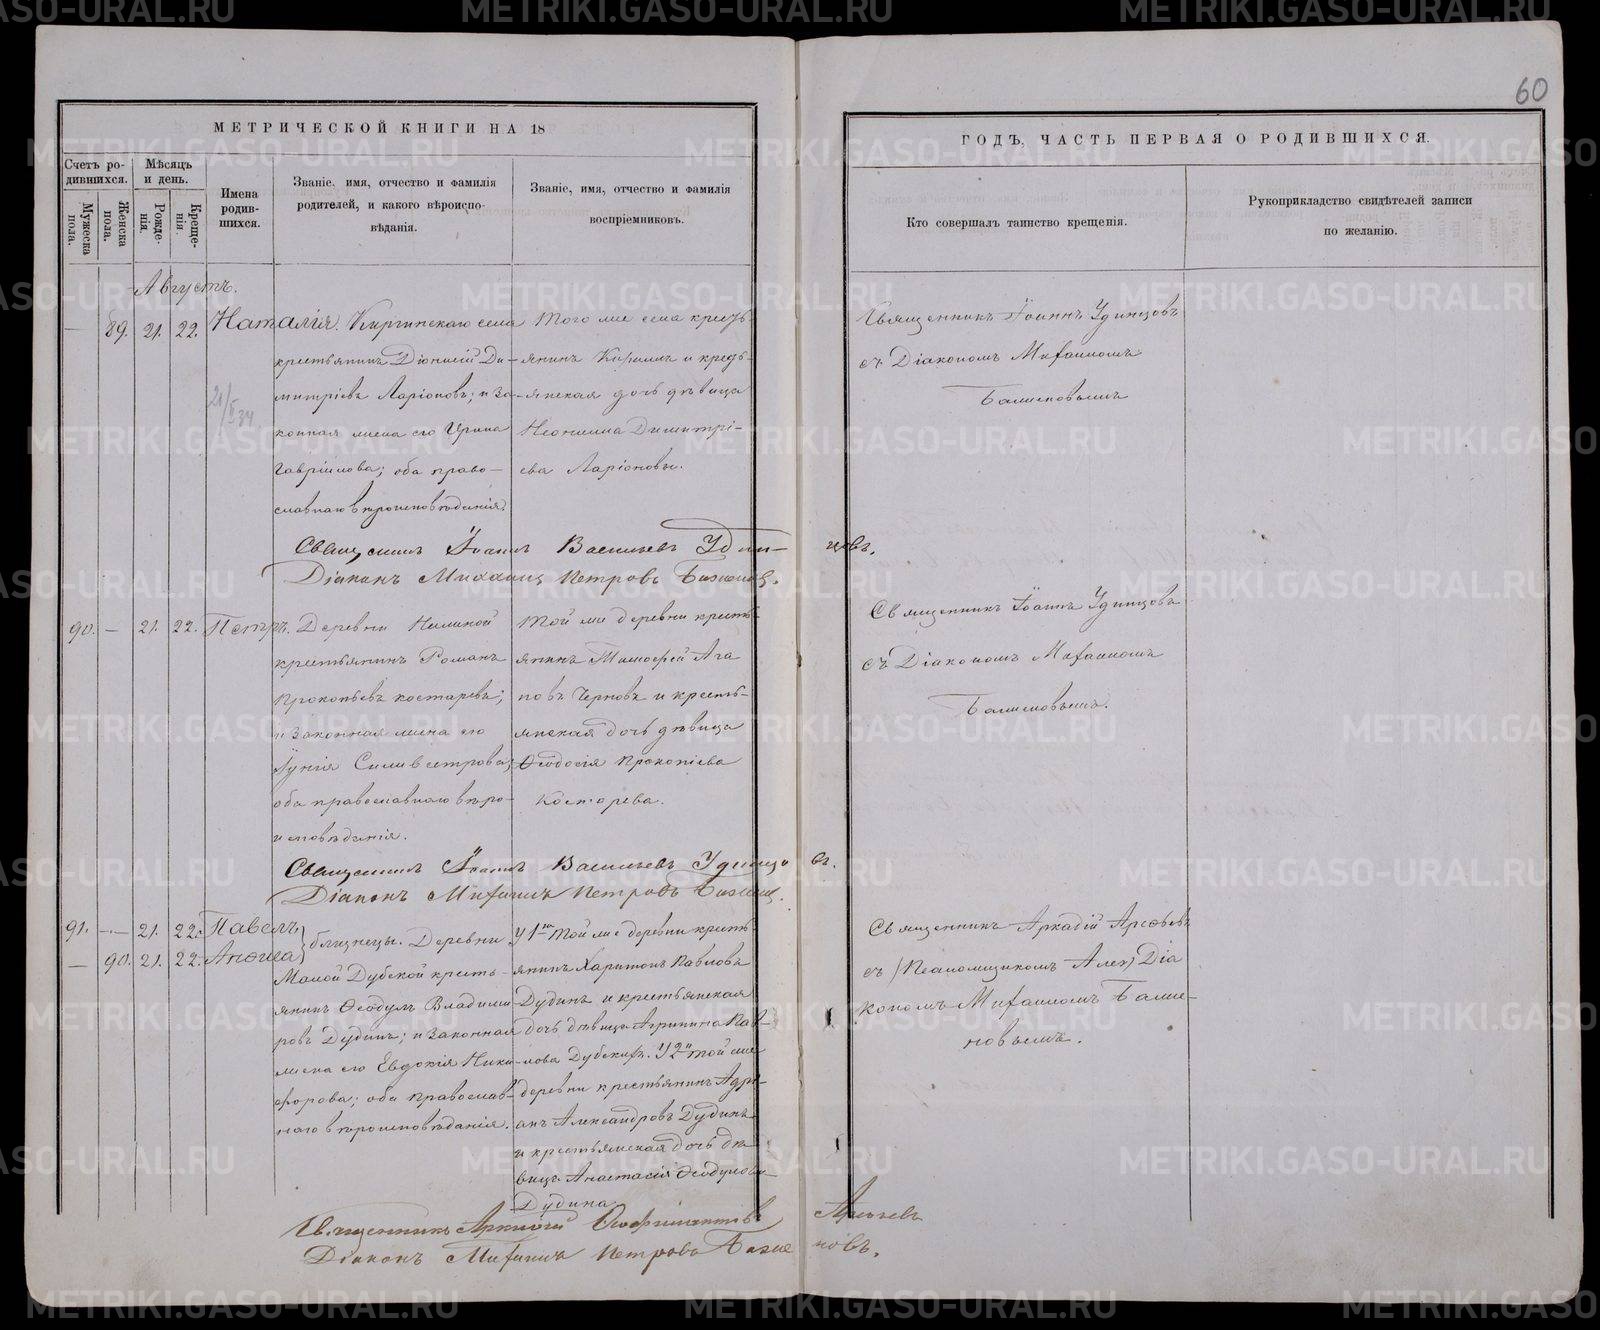 60
МЕТРИЧЕСКОЙ КНИГИ НА 18
ГОДЪ, ЧАСТЬ ПЕРВАЯ О РОДИВШИХСЯ.
Счетъ ро-
дившихся.
Мужеска
пола.
Женска
пола.
Мѣсяцъ
и день.
Рожде-
нія.
Креще-
нія.
Имена
родив-
шихся.
Званіе, имя, отчество и фамилія
родителей, и какого вѣроиспо-
вѣданія.
Званіе, имя, отчество и фамилія
воспріемниковъ.
Кто совершалъ таинство крещенія.
Рукоприкладство свидѣтелей записи
по желанію.
Августъ.
— 89. 21. 22. Наталія.
Киргинскаго села
крестьянинъ Діонисій Ди-
митріевъ Ларіоновъ; и за-
конная жена его Ирина
Гавріилова; оба право-
славнаго вѣроисповѣданія.
Того же села кресть-
янинъ Кириллъ и кресть-
янская дочь дѣвица
Неонилла Димитрі-
ева Ларіоновы.
Священникъ Іоаннъ Удинцовъ
съ Діакономъ Михаиломъ
Баженовымъ
Священникъ Іоаннъ Васильевъ Удин-
цовъ.
Діаконъ Михаилъ Петровъ Баженовъ.
90. — 21. 22. Петръ.
Деревни
крестьянинъ Романъ
Прокопьевъ Костаревъ;
и законная жена его
Силивестрова;
оба православнаго вѣро-
исповѣданія.
Той же деревни кресть-
янинъ Тимофей Ага
повъ Черновъ и кресть-
янская дочь дѣвица
Ѳеодосія Прокопіева
Костарева.
Священникъ Іоаннъ Удинцовъ
съ Діакономъ Михаиломъ
Баженовымъ.
Священникъ Іоаннъ Васильевъ Удинцо
въ.
Діаконъ Михаилъ Петровъ Баженов.
91. — 21. 22. Павелъ
— 90. 21. 22. Анфиса
близнецы. Деревни
Малой Дубской кресть-
янинъ Ѳеодулъ Владими-
ровъ Дудинъ; и законная
жена его Евдокія Ники-
форова; оба православ-
наго вѣроисповѣданія.
У 1го той же деревни кресть-
янинъ Харитонъ Павловъ
Дудинъ и крестьянская
дочь дѣвица Агрипина Пав-
лова У 2й той же
деревни крестьянинъ Адрі-
анъ Александровъ Дудинъ
и крестьянская дочь дѣ
вица Анастасія Ѳеодулова
Дудина
Священникъ Аркадій Арефьевъ
съ Псаломщикомъ Діа
кономъ Михаиломъ Баже-
новымъ.
Священникъ Аркадій
Арефьевъ
Діаконъ Михаилъ Петровъ Баже
новъ.
METRIKI.GASO-URAL.RU